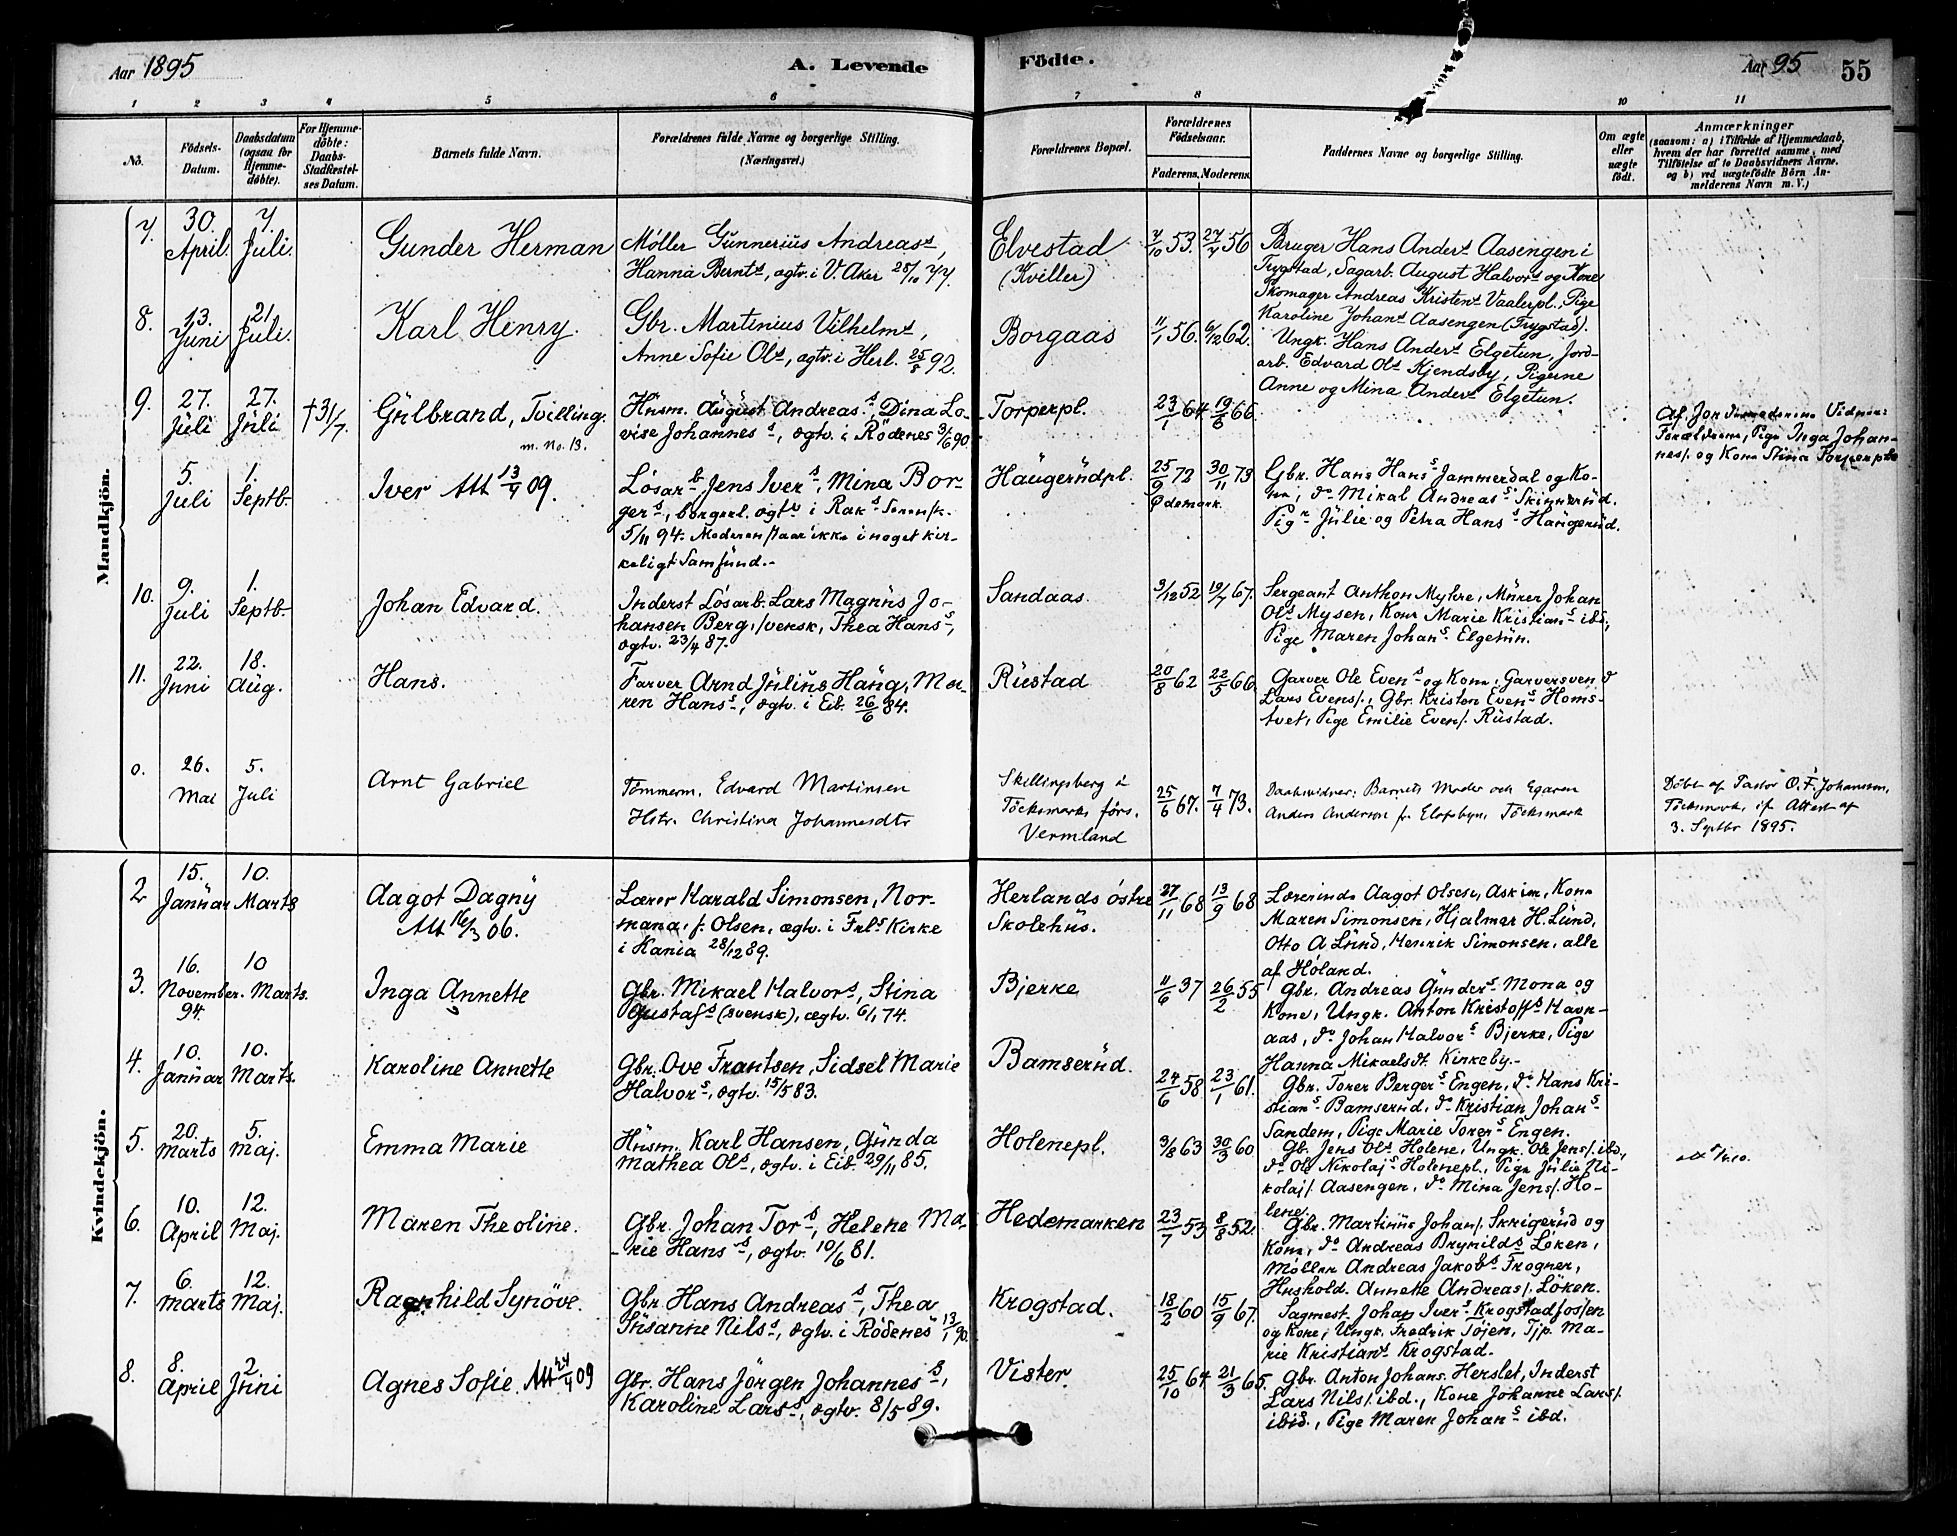 Aar 1895
A. Levende
Födte.
Aar 95
55
1 2 3 4 5 6 7 8 10 11
No.
Födsels-Datum.
Daabsdatum (ogsaa for Hjemme-döbte).
For Hjemme-döbte: Daabs-Stadfæstel-ses Datum.
Barnets fulde Navn.
Forældrenes fulde Navne og borgerlige Stilling.
(Næringsvei.)
Forældrenes Bopæl.
Forældrenes Födselsaar.
Faderens. Moderens.
Faddernes Navne og borgerlige Stilling.
Om ægte eller uægte födt.
Anmærkninger
(saasom: a) i Tilfælde af Hjemmedaab,
hvem der har forrettet samme, med
Tilföielse af to Daabsvidners Navne.
og b) ved uægtefödte Börn An-
melderens Navn m. V.)
Mandkjön.
7. 30. April. 7. Juli.
Gunder Herman
Møller Gunnerius Andreass,
Hanna Bernts, ægtv. i V. Aker 28/10 77.
Elvestad
(Kviller)
7/10 53. 27/7 56
Bruger Hans Anders Aasengen i
Trygstad, Sagarb. August Halvors og Kone
Skomager Andreas Kristens Vaalerpl., Pige
Karoline Johans Aasengen (Trygstad).
8. 13. Juni 21 Juli.
Karl Henry.
Gbr. Martinius Vilhelms,
Anne Sofie Ols, ægtv. i Herl. 25/8 92.
Borgaas
11/1 56. 6/12 62.
Ungk. Hans Anders Elgetun, Jord-
arb. Edvard Ols Kjendsby, Pigerne
Anne og Mina Anders Elgetun.
9. 27. Juli 27. Juli † 31/7.
Gulbrand, Tvilling.
m. No. 13.
Husm. August Andreas s, Dina Lo-
vise Johannes s, ægtv. i Rödenes 3/6 90
Torperpl.
23/1 64 19/6 66
Af Jordemoderen Vidner:
Forældrene, Pige Inga Johan-
nes/. og Kone Stina Torperpl.
5. Juli 1. Septb.
Iver Att 13/4 09.
Lösarb. Jens Ivers, Mina Bor-
gers, borgerl. ægtv i Raks Soren/k.
5/11 94. Moderen staar ikke i noget kir-
keligt Samfund.-
Haugerudpl.
25/9 72 30/11 73
Ødemark
Gbr. Hans Hans s Jammerdal og Ko-
ne, do Mikal Andreas s Skinnerud.
Pigr Julie og Petra Hans s Haugerud.
10. 9. Juli 1. Septb.
Johan Edvard.
Inderst Lösarb. Lars Magnus Jo-
hansen Berg, svensk, Thea Hans s,
ægtv. 23/4 87.
Sandaas
3/12 52 19/7 67.
Sergeant Anthon Myhre, Murer Johan
Ols Mysen, Kone Marie Kristians ibd,
Pige Maren Johans Elgetun.
11. 22. Juni 18. Aug.
Hans.
Farver Arnd Julius Haug, Ma-
ren Hans s, ægtv. i Eib. 26/6 84.
Rustad
20/8 62 22/5 66
Garver Ole Evens og Kone, Garversvend
Lars Evens/., Gbr. Kristen Evens Homs-
tvet, Pige Emilie Evens/. Rustad.
0. 26. Mai 5. Juli
Arnt Gabriel
Tömmerm. Edvard Martinsen
Hstr. Christina Johannesdtr
Skillingsberg i
Töcksmarks förs.
Vermland
25/6 67. 7/4 73.
Daabsvidner: Barnets Moder och Egaren
Anders Anderson fr. Elofsbyn, Töcksmark
Döbt af Pastor O. F. Johansson,
Töcksmark, if Attest af
3. Septbr 1895.
Kvindekjön.
2 15. Januar 10. Marts
Aagot Dagny
Att 16/3 06.
Lærer Harald Simonsen, Nor-
mana, f. Olsen, ægtv. i Frls Kirke
i Kania 28/12 89.
Herlands östre
Skolehus.
27/11 68 13/9 68
Lærerinde Aagot Olsesen, Askim, Kone
Maren Simonsen, Hjalmar H. Lund,
Otto A Lund, Henrik Simonsen, alle
af Höland.
3. 16. November. 94. 10 Marts.
Inga Annette
Gbr. Mikael Halvors, Stina
Gustafs (svensk), ægtv. 6/1 74.
Bjerke
11/6 37 26/2 55
Gbr. Andreas Gunders Mona og
Kone, Ungk. Anton Kristoffs Havn-
aas, do Johan Halvors Bjerke, Pige
Hanna Mikaelsdt. Kirkeby.-
4. 10. Januar 10. Marts.
Karoline Annette
Gbr. Ove Frantsen, Sidsel Marie
Halvors, ægtv. 15/5 83.
Bamserud.
24/6 58 23/1 61.
Gbr. Torer Bergers Engen, do Hans Kri-
stians Bamserud, do Kristian Johans
Sandem, Pige Marie Torers Engen.
5. 20. Marts 5. Maj.
Emma Marie
Husm. Karl Hansen, Gunda
Mathea Ols, ægtv. i Eib. 29/11 85.
Holenepl.
3/8 63 30/3 60
Gb. Jens Ols Holene, Ungk. Ole Jens/. ibd,
do Ole Nikolajs Holenepl, Pige Julie Ni-
kolaj/. Aasengen, do Mina Jens/. Ho-
lene.
6. 10. April 12. Maj.
Maren Theoline.
Gbr. Johan Tors, Helene Ma-
rie Hans s, ægtv. 10/6 81.
Hedemarken
23/7 53 8/8 52.
Gbr. Martinius Johan/. Skrigerud og
Kone, do Andreas Brynilds Löken,
Möller Andreas Jakobs Frogner,
Hushold. Annette Andreas/. Löken.
7. 6. Marts 12. Maj.
Ragnhild Synöve.
Gbr Hans Andreas s, Thea
Susanne Nils s, ægtv. i Rödenes 13/1 90.
Krogstad.
18/2 60 15/9 67.
Sagmest. Johan Ivers Krogstadfossen
og Kone, Ungk. Fredrik Töjen, Tjp. Ma-
rie Kristians Krogstad.
8. 8. April 2 Juni
Agnes Sofie. Att 24/4 09
Gbr. Hans Jörgen Johannes s,
Karoline Lars s, ægtv. 8/5 89.
Vister
25/10 64 21/3 65.
Gbr. Anton Johans. Herslet, Inderst
Lars Nils/. ibd., Kone Johanne Lars/.
ibid., Pige Maren Johans ibd.